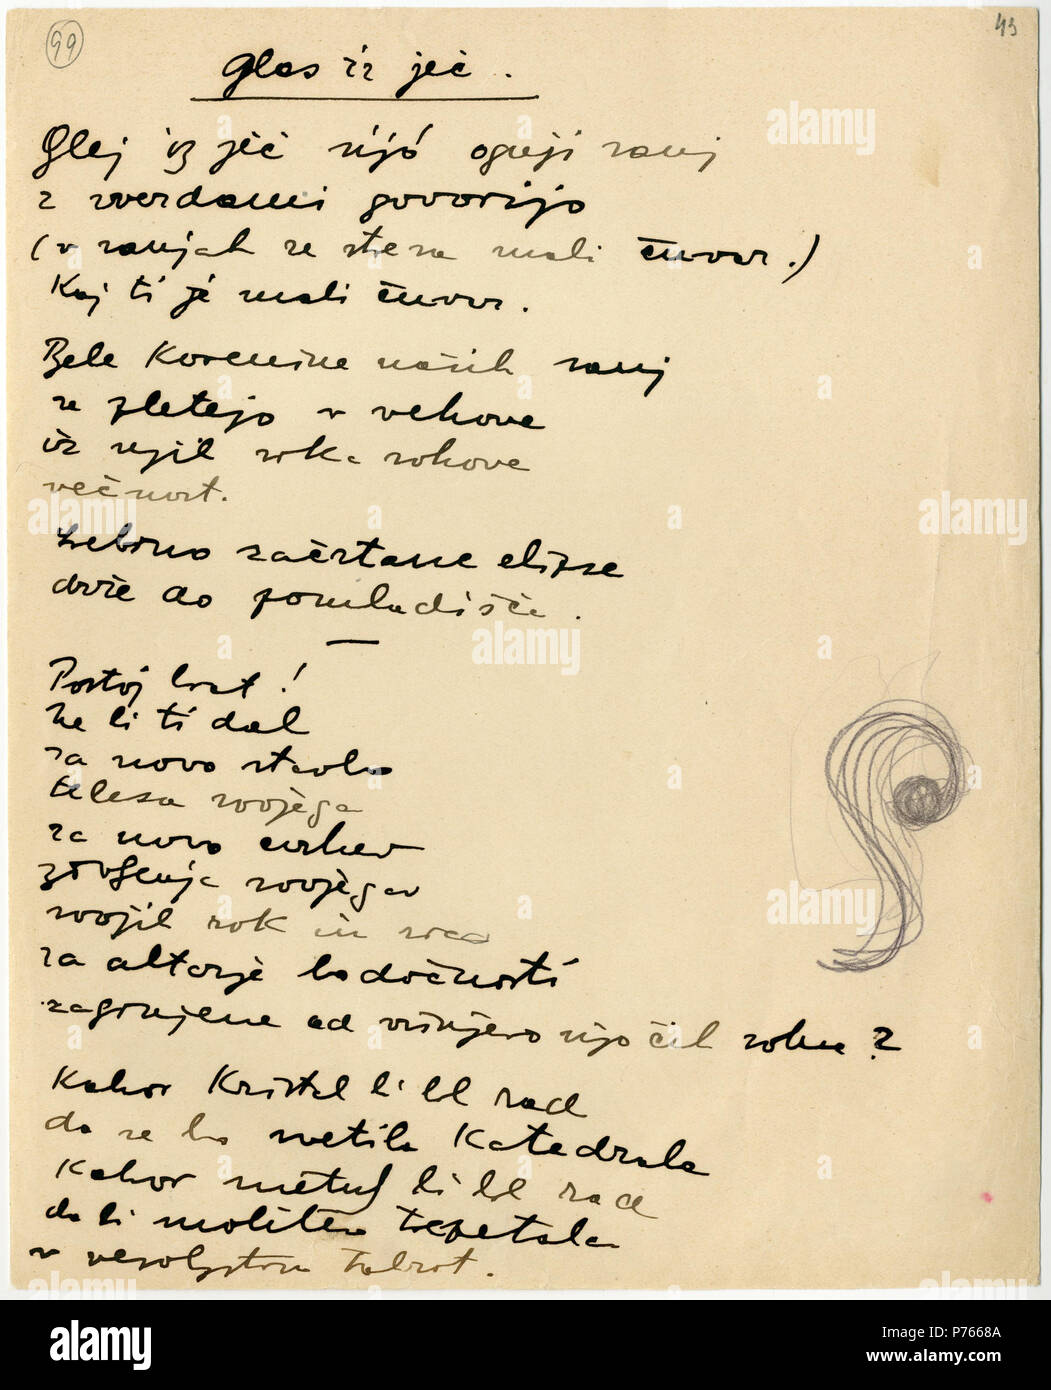 99
43
Glas iz ječ.
Glej iz ječ sijó ognji sanj
z zvezdami govorijo
(v sanjah se stesa mali čuvar.)
Kaj ti je mali čuvar.
Bele korenine naših sanj
se spletejo v vekove
iz njih srka sokove
večnost.
Srebrno začrtane elipse
drže do
Postoj brat!
Ne bi ti dal
za novo stavbo
telesa svojega
za novo cerkev
svojega
svojih rok in srca
za altarje bodočnosti
zagrnjene od višnjevo sijočih sohn?
Kakor Kristal bi bil rad
da se bo svetila Katedrala
Kakor metulj bi bil rad
da bi molitev trepetala
v vesoljstva
alamy
a
alamy
Image ID: P7668A
www.alamy.com